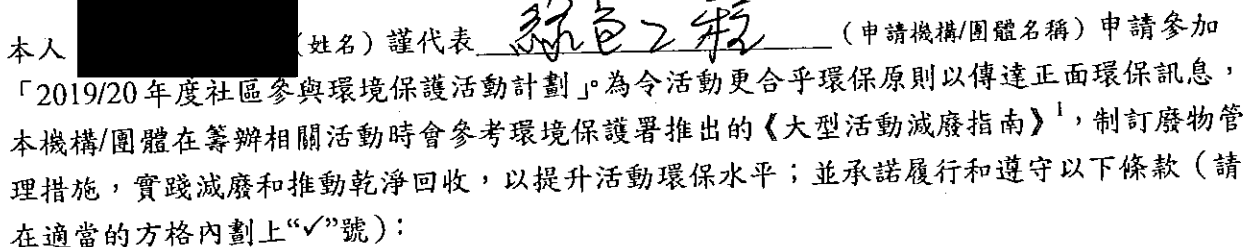 本人 (姓名) 謹代表 綠色工程 (申請機構/團體名稱) 申請參加
「2019/20 年度社區參與環境保護活動計劃」。為令活動更合乎環保原則以傳達正面環保訊息，
本機構/團體在籌辦相關活動時會參考環境保護署推出的《大型活動減廢指南》1，制訂廢物管
理措施，實踐減廢和推動乾淨回收，以提升活動環保水平；並承諾履行和遵守以下條款（請
在適當的方格內劃上“✓”號）：